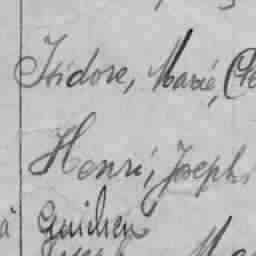 Isidore, Marie,
Henri, Joseph
à Guichen